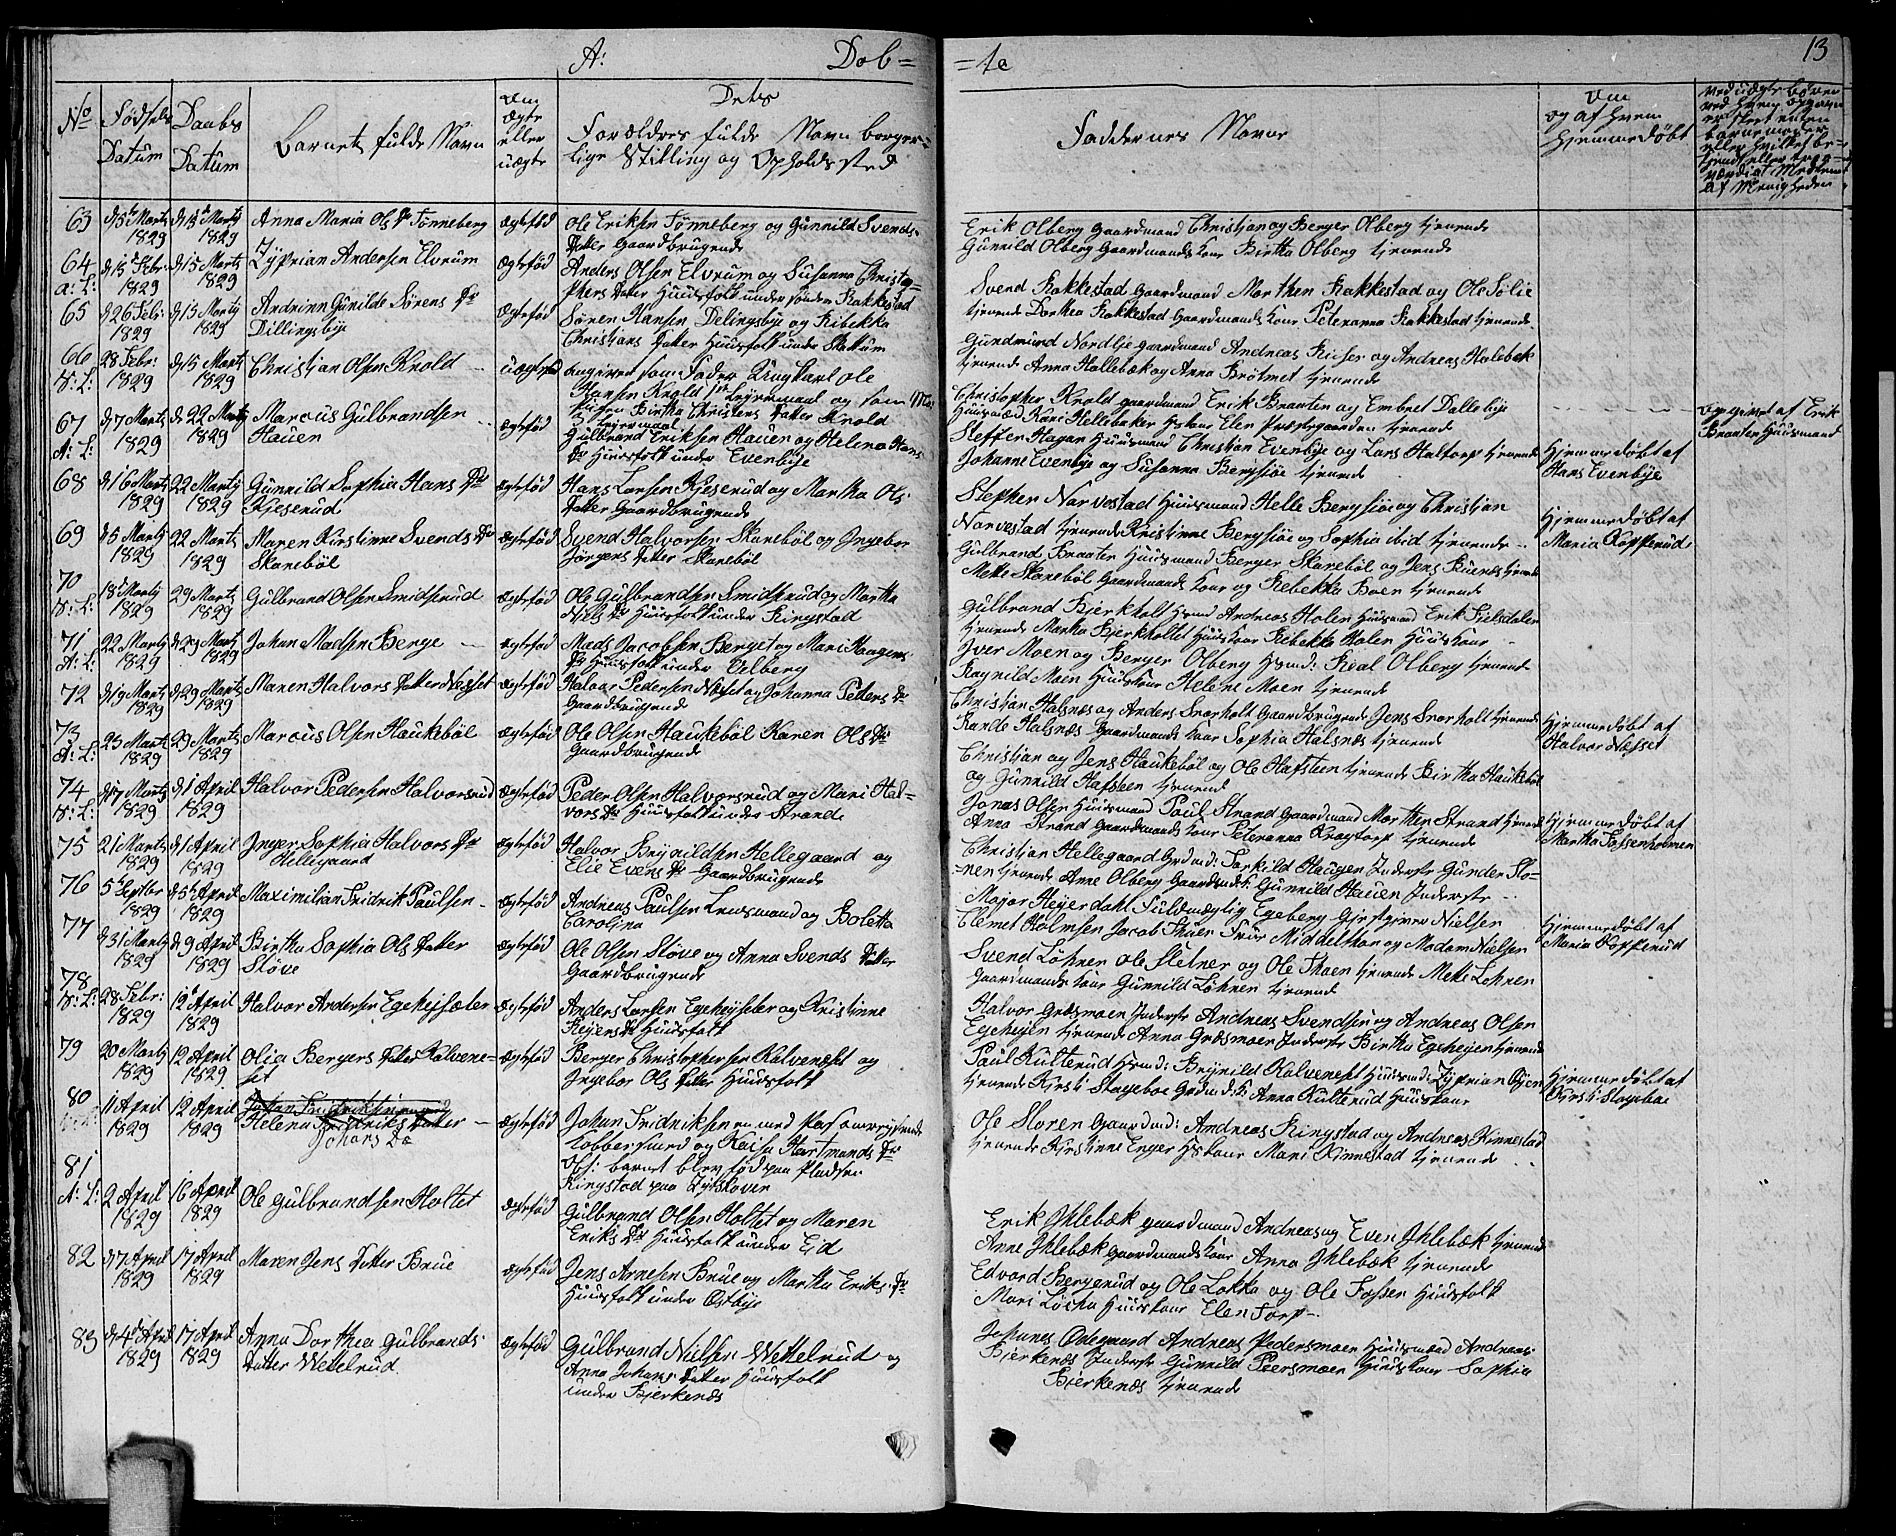 A: Døb= =te 13
No
Fødsels Datum
Daabs Datum
Barnets fulde Navn
Om Ægte eller uægte
Dets Forældres fulde Navn borger=
lige Stilling og Opholdssted
Faddernes Navne
Om og af hvem hjemmedøbt
63 d 5te Marts 1829 d 15de Marts 1829 Anna Maria Ols Dr Tønneberg Ægtefød Ole Eriksen Tønneberg og Gunnild Svends-
Datter Gaardbrugende
Erik Olberg Gaardmand Christian og Berger Olberg tjenende
Gunnild Olberg Gaardmands Kone Birthe Olberg tjenende
64 a: L: d 15de Febr: 1829 d 15 Marts 1829 Zyprian Andersen Elvrum Ægtefød Anders Olsen Elvrum og Susanna Christo-
phers Datter Huusfolk under søndre Rakkestad
Svend Rakkestad Gaardmand Marthen Rakkestad og Ole Sølie
tjenende Dorthea Rakkestad Gaardmands Kone Peteranna Rakkestad tjenende
65 d 26 Febr: 1829 d 15 Marts 1829 Andrinn Gunilde Sørens Dr
Dillingsbye Ægtefød Søren Hansen Delingsbye og Ribekka
Christians Datter Huusfolk under Skattum
Gundmund Nordbye Gaardmand Andreas Kieser og Andreas Holebek
tjenende Anna Hallebæk og Anna Brötmet tjenende
66 V: L: 28 Febr: 1829 d 15 Marts 1829 Christian Olsen Krold uægtefød angiven som Fader Ungkarl Ole
Hansen Krold 1ste Leyermaal og som Mo-
der Birtha Christens Datter Krold
Leyermaal
Christopher Krold Gaardmand Erik Braaten og Embret Dallebye
Huusmænd Kari Hellebæker Kone Elen Prestegaarden tjenende
opgivet af Erik
Braaten Huusmand
67 A: L: d 7 Marts 1829 d 22 Marts 1829 Marcus Gulbrandsen
Hauen Ægtefød Gulbrand Eriksen Hauen og Helena Hans
Dr Huusfolk under Evenbye
Steffen Hagen Huusmand Christian Evenbye og Lars Haltorp tjenende
Johanne Evenbye og Susanna Bergsiøe tjenende
Hjemmedøbt af
Hans Evenbye
68 d 16 Marts 1829 22 Marts 1829 Gunnild Sophia Hans Dr
Kjeserud Ægtefød Hans Larsen Kjeserud og Martha Ols
Datter Gaardbrugende
Stephen Narvestad Huusmand Helle Bergsiøe og Christian
Narvestad tjenende Kristinne Bergsiøe og Sophia ibid tjenende
Hjemmedøbt af
Maria Kopperud
69 d 5 Marts 1829 22 Marts 1829 Maren Kirstinne Svends Dr
Skarebøl Ægtefød Svend Halvorsen Skarebøl og Ingebor
Jørgens Datter Skarebøl
Gulbrand Braaten Huusmand Berger Skarebøl og Jens Buenæs tjenende
Mette Skarebøl Gaardmands Kone og Rebekka Boen tjenende
70 V: L: 18de Marts 1829 29 Marts 1829 Gulbrand Olsen Smidsrud Ægtefød Ole Gulbrandsen Smidsrud og Martha
Nels Dr Huusfolk under Ringstad
Gulbrand Bjerkholt Hsmd Andreas Holen Huusmand Erik Fielsdalen
tjenende Martha Bjerkholtet Huuskone Ribekka Holen Huuskone
71 A: L: 22 Marts 1829 d 29 Marts 1829 Johan Madsen Berge Ægtefød Mads Jacobsen Berget og Mari Haagens
Dr Huusfolk under Aalberg
Iver Moen og Berger Olberg Hsmd: Roal Olberg tjenende
Ragnild Moen Huuskone Helene Moen tjenende
72 d 19 Marts 1829 d 29 Marts 1829 Maren Halvors Datter Nesset Ægtefød Halvor Pedersen Næset og Johanna Peders Dr
Gaardbrugende
Christian Halsnæs og Anders Snorholt Gaardbrugende Jens Snorholt tjenende
Rande Halsnæs Gaardmands Kone Sophia Halsnæs tjenende
Hjemmedøbt af
Halvor Nesset
73 A: L: 25 Marts 1829 29 Marts 1829 Marcus Olsen Haukebøl Ægtefød Ole Olsen Haukebøl Karen Ols Dr
Gaardbrugende
Christian og Jens Haukebøl og Ole Hafsteen tjenende Birtha Haukebøl
og Gunnild Hafsteen tjenende
74 V: L: d 17 Marts 1829 d 1 April 1829 Halvor Pedersen Halvorsrud Ægtefød Peder Olsen Halvorsrud og Mari Hal-
vors Dr Huusfolk under Strande
Jonas Olsen Huusmand Paul Strand Gaardmand Morthen Strand tjenende
Anna Strand Gaardmands Kone Peteranna Krogtorp tjenende
Hjemmedøbt af
Martha Fossenholmen
75 21 Marts 1829 d 1 April 1829 Inger Sophia Halvors Dr
Hellegaard Ægtefød Halvor Brynildsen Hellegaard og
Elie Evens Dr Gaardbrugende
Christian Hellegaard Grdmd: Torkild Haugen Inderste Gunder Slo-
nen tjenende Anne Olberg Gaardmdk: Gunnild Hauen Inderste
76 5te Septbr 1829 d 5te April 1829 Maximilian Fridrik Paulsen Ægtefød Andreas Paulsen Lensmand og Boletta
Carolina
Major Heyerdahl Fuldmægtig Egeberg Gjestgiver Nielsen
Clemet Holmsen Jacob Thuer Frue Middelthon og Madam Nielsen
Hjemmedøbt af
Maria Kopperud
77 d 31 Marts 1829 d 9 April 1829 Birtha Sophia Ols Datter
Sløve Ægtefød Ole Olsen Sløve og Anna Svends Datter
Gaardbrugende
Svend Löhren Ole Sletner og Ole Thoen tjenende Mette Lohren
Gaardmands Kone Gunnild Löhren tjenende
78 V: L: 28 Febr: 1829 12 April 1829 Halvor Andersen Egehejsæter Ægtefød Anders Larsen Egeheyseter og Kristinne
Reyers Dr Huusfolk
Halvor Græsmoen Inderste Andreas Svendsen og Andreas Olsen
Egeheyen tjenende Anna Græsmoen Inderste Birtha Egeheyen tjenende
79 20 Marts 1829 12 April 1829 Olia Bergers Datter Kalvene-
set Ægtefød Berger Christophersen Kalveneset og
Ingebor Ols Datter Huusfolk
Paul Kulterud Hsmd: Brynild Kalveneset Huusmd: Zyprian Øyen
tjenende Kirsti Stageboe Grdmdk: Anna Kulterud Huuskone
Hjemmedøbt af
Kirsti Stageboe
80 11 April 1829 12 April 1829
Helena Fredriks Datter
Johans Dr Ægtefød Johan Fridriksen en med Pas omreysende
Kobbersmed og Kaisa Hartmands Dr
Obs: barnet blev fød paa Pladsen
Ringstad paa Zytskoven
Ole Storen Gaardmd: Andreas Ringstad og Andreas Kinnestad
tjenende Kirstinne Enger Hskone Mari Kinnestad tjenende
81 A: L: 2 April 1829 16 April 1829 Ole Gulbrandsen Holtet Ægtefød Gulbrand Olsen Holtet og Maren
Eriks Dr Huusfolk under Eid
Erik Ihlebæk Gaardmand Andreas og Even Ihlebæk tjenende
Anne Ihlebæk Gaardmands Kone Anna Ihlebæk tjenende
82 d 7 April 1829 17 April 1829 Maren Jens Datter Brue Ægtefød Jens Arnesen Brue og Martha Eriks Dr
Huusfolk under Østbye
Edvard Bergerud og Ole Lokka og Ole Fossen Huusfolk
Mari Löcka Huuskone Elen Torp
83 d 4de April 1829 17 April 1829 Anna Dorthea Gulbrands-
datter Wettelrud Ægtefød Gulbrand Nielsen Wettelrud og
Anna Johans Datter Huusfolk
under Bjerkenæs
Johanes Ødegaard Andreas Pedersmoen Huusmænd Andreas
Bjerkenæs Inderste Gunnild Peersmoen Huuskone Sophia
Bjerkenæs tjenende